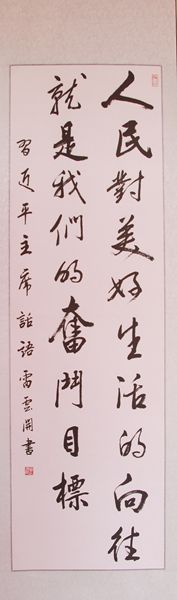 人民對美好生活的向往
就是我們的奮鬥目標
習近平主席話語雷雲開書